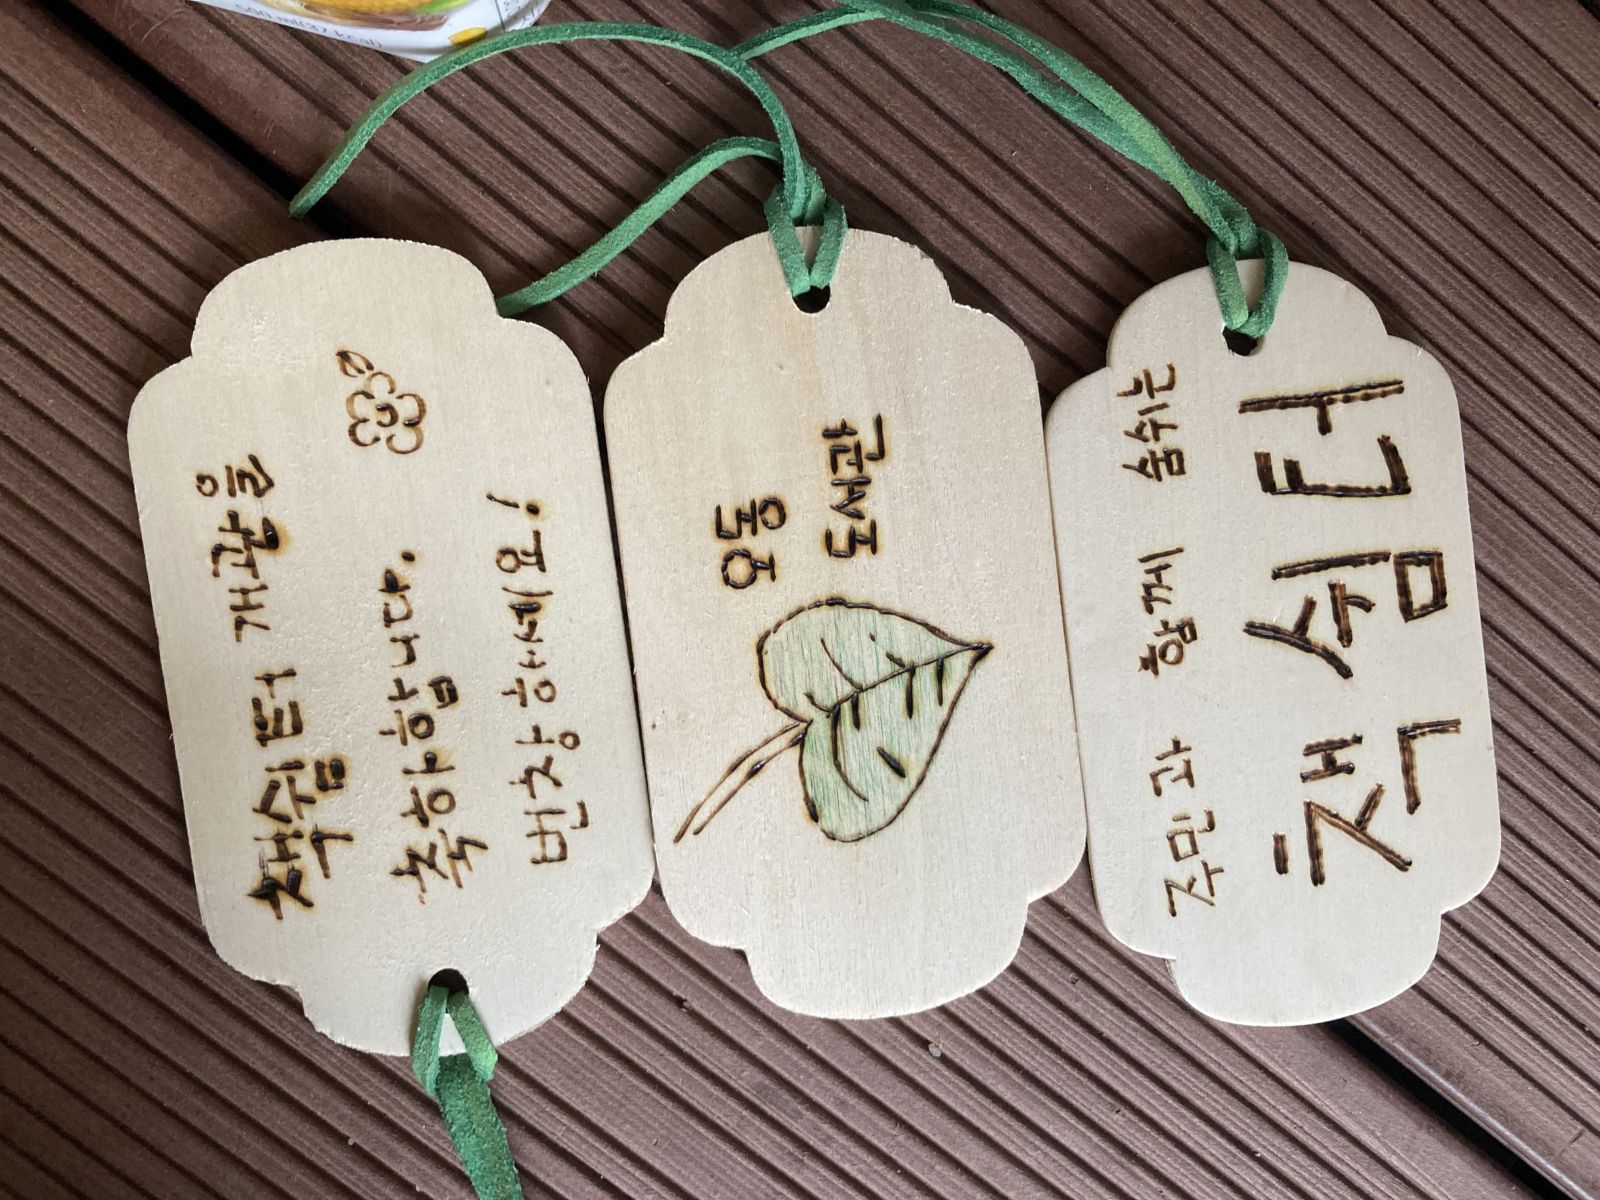 500 ml(37 kcal)
책쉼터 개관을
축하합니다.
번창하세요!
주민과 함께 숨쉬는
책쉼터